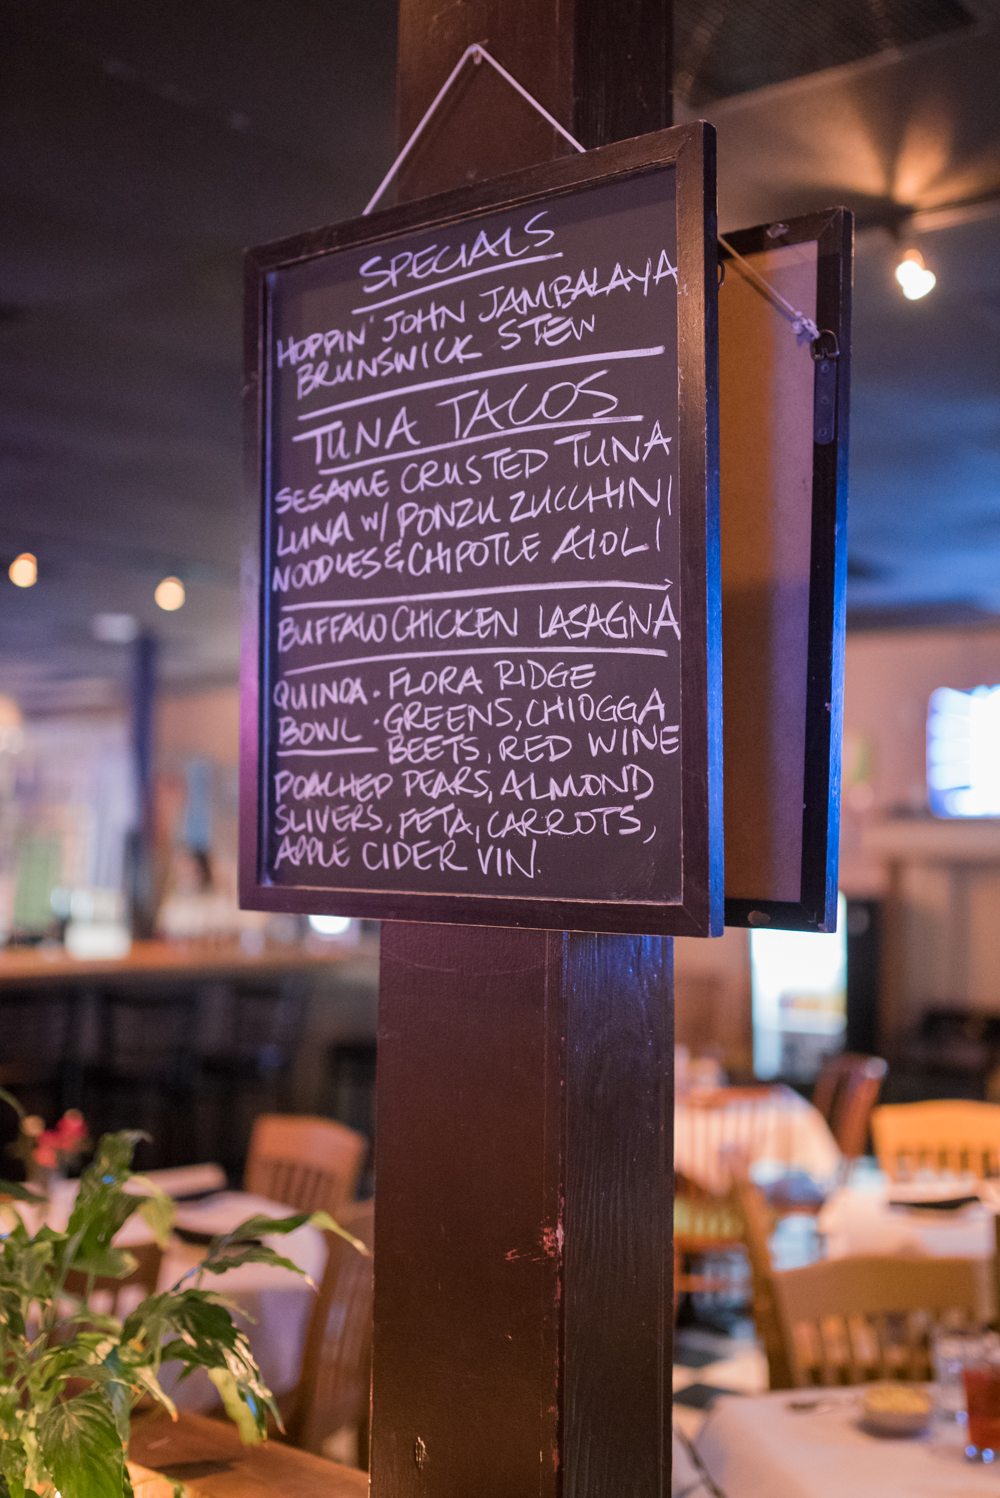 SPECIALS
HOPPIN' JOHN JAMBALAYA
BRUNSWICK STEW
TUNA TACOS
SESAME CRUSTED TUNA
LUNA W/ PONZU ZUCCHINI
NOODLES & CHIPOTLE AIOLI
BUFFALO CHICKEN LASAGNA
QUINOA · FLORA RIDGE
BOWL · GREENS, CHIOGGA
BEETS, RED WINE
POACHED PEARS, ALMOND
SLIVERS, FETA, CARROTS,
APPLE CIDER VIN.